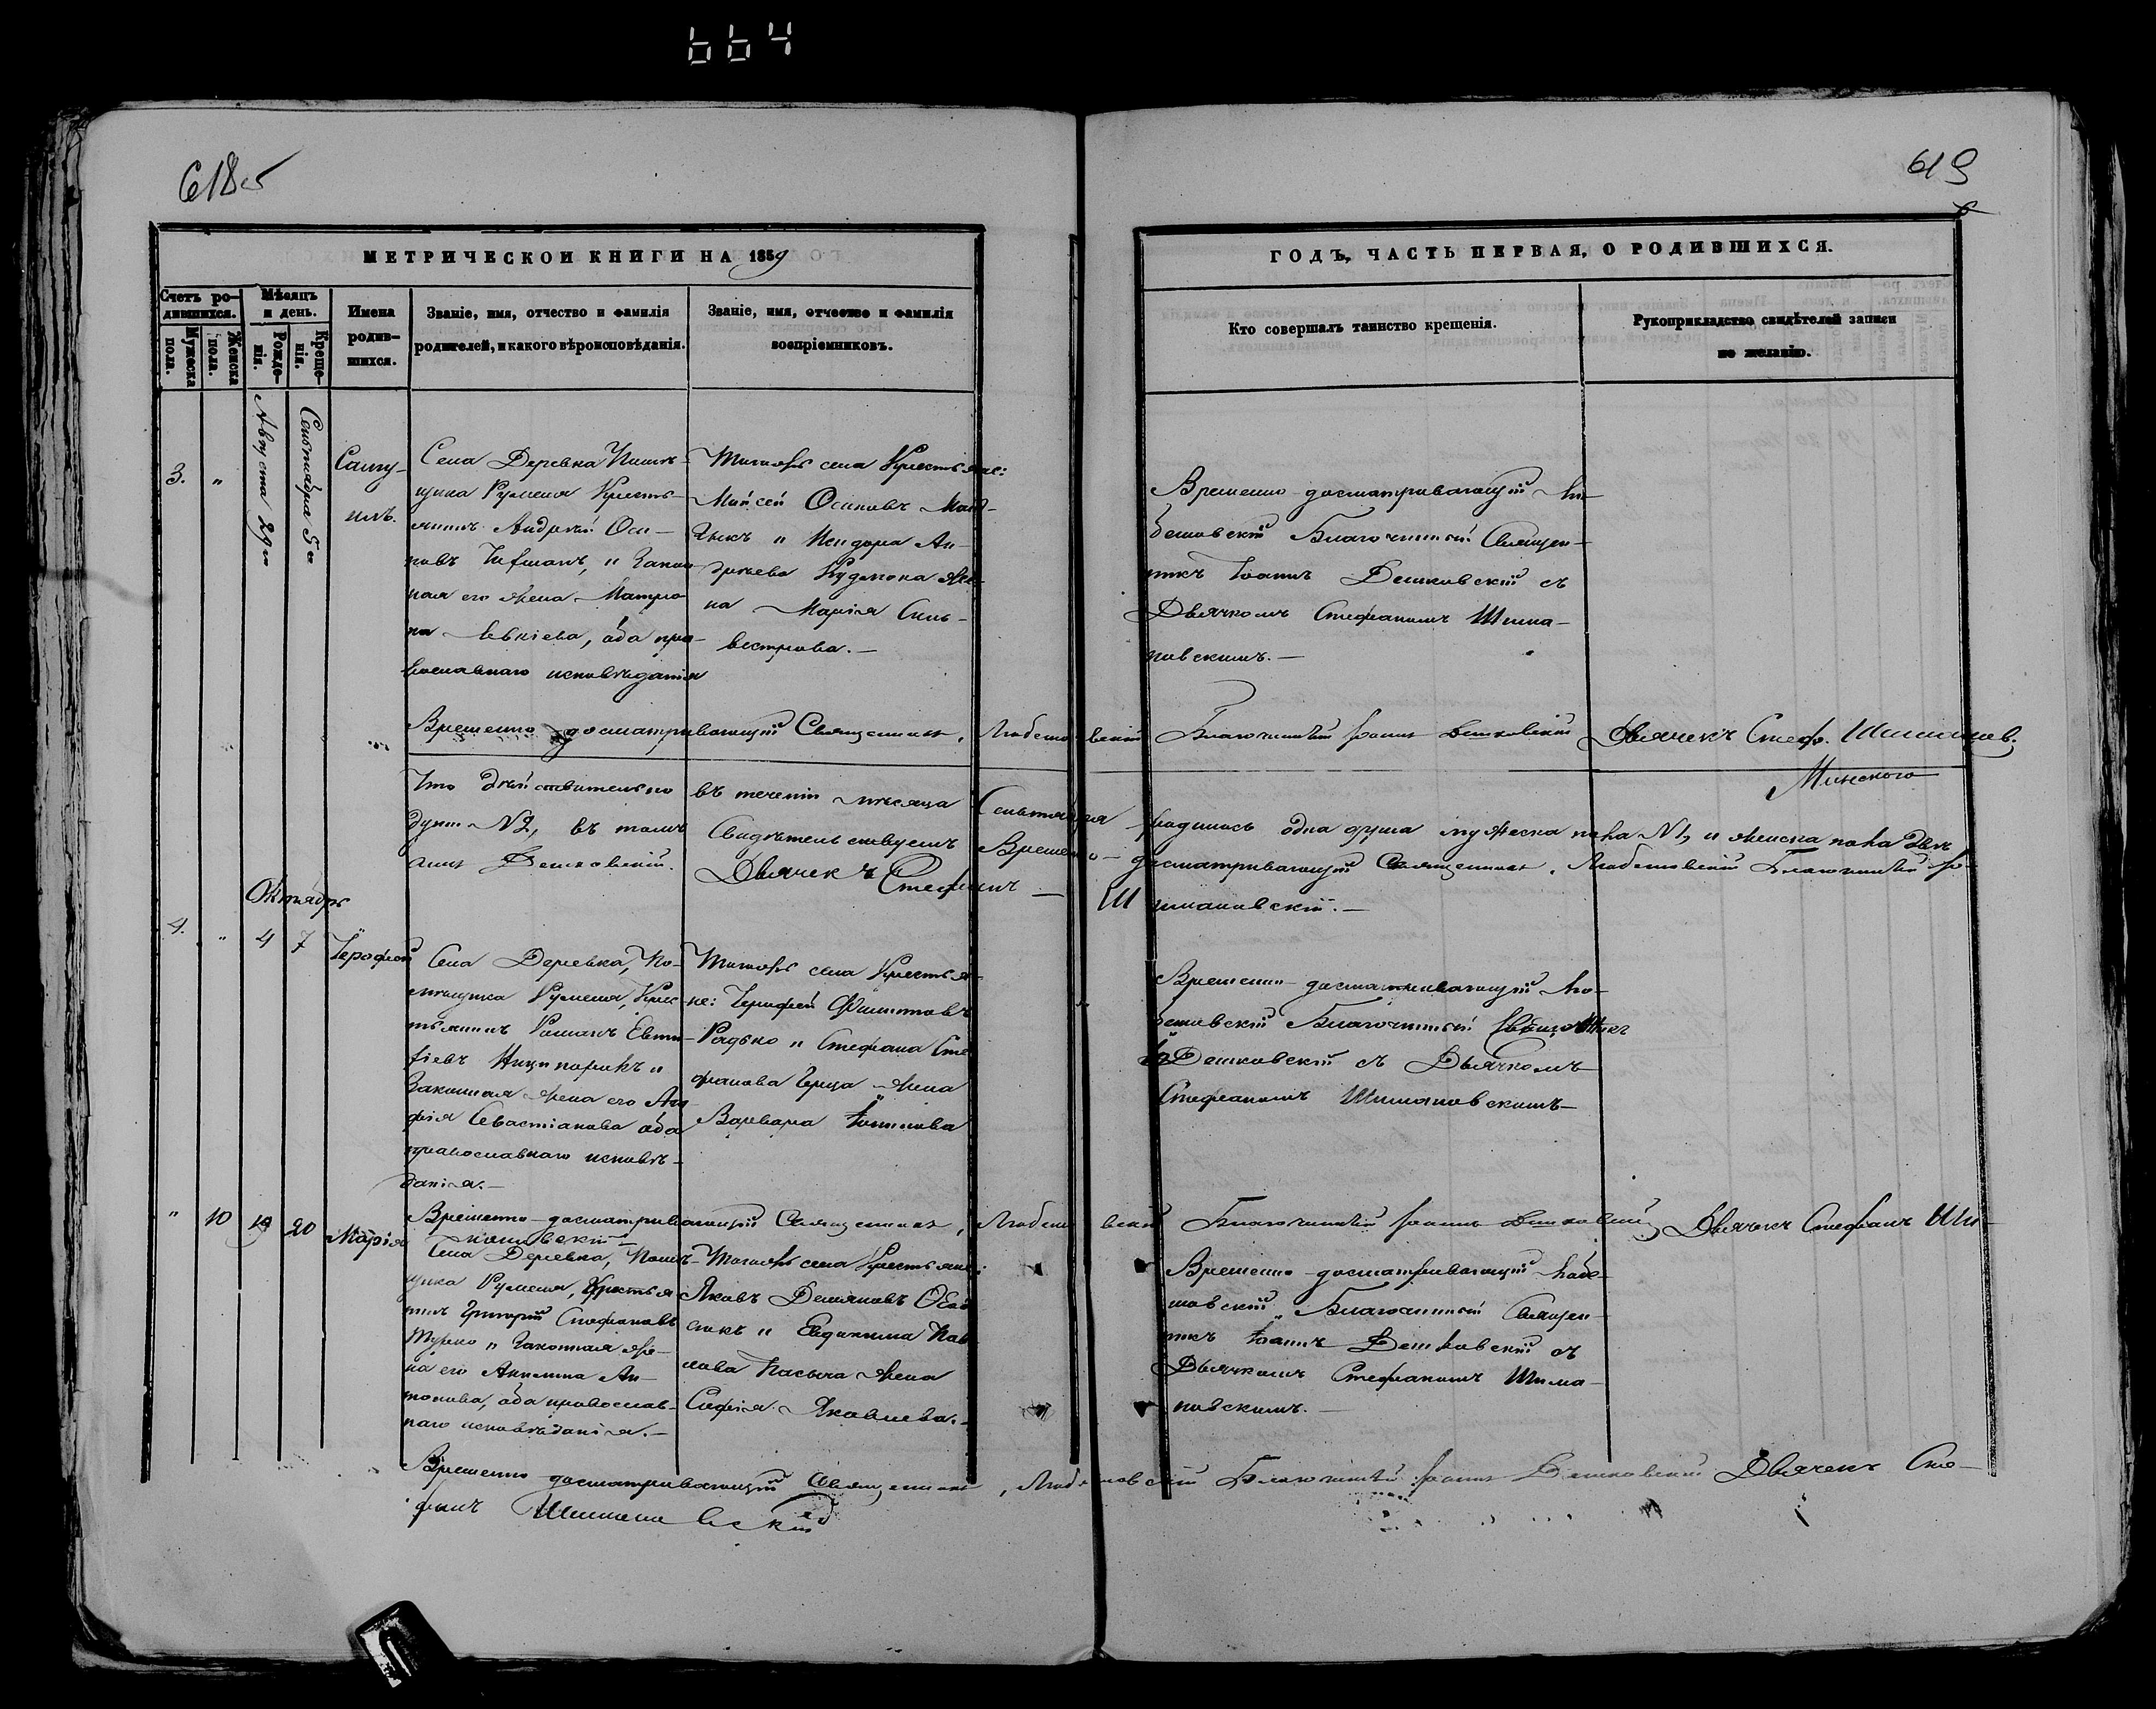 664
618 об
619
МЕТРИЧЕСКОИ КНИГИ НА 1859
ГОДЪ, ЧАСТЬ ПЕРВАЯ, О РОДИВШИХСЯ.
Счетъ ро-
дившихся.
Мужеска
пола.
Женска
пола.
Мѣсяцъ
и день.
Рожде-
нія.
Креще-
нія.
Имена
родив-
шихся.
Званіе, имя, отчество и фамилія
родителей, и какого вѣроисповѣданія.
Званіе, имя, отчество и фамилія
воспріемниковъ.
Кто совершалъ таинство крещенія.
Рукоприкладство свидѣтелей записи
по желанію.
3.
"
Августа 29
Сентября 5
Саму-
илъ.
Села Деревка Помѣ-
щика Крестья-
янинъ Андрей Оси-
повъ и Закон
ная его жена Матро
на Левкіева, оба пра-
вославнаго исповѣданія
Тогожъ села Крестьяне:
Мойсей Осиповъ
и Ан-
дреева жена
Марія Силь-
вестрова.-
Временно-досматривающій Лю-
бешовскій Благочинный Священ-
никъ Іоаннъ Дешковскій съ
Дьячкомъ Стефаномъ Шима-
новскимъ.-
Временно досматривающій Священникъ, Любешовскій Благочинный Іоаннъ Дешковскій Дьячекъ Стеф. Шиманов.
Что дѣйствительно въ теченіи мѣсяца Сентября родилось одна душа мужеска пола №1, и женска пола двѣ
души №2, въ томъ Свидѣтельствуемъ Временно-досматривающій Священникъ, Любешовскій Благочинный Іо-
аннъ Дешковскій. Дьячекъ Стефанъ - Шимановскій.-
Октябрь
4.
"
4
7
Іерофей
Села Деревка, По-
мѣщика Крес-
тьянинъ Романъ Евти-
фіевъ Ничипорукъ и
Законная жена его Ага-
фія Севастіанова оба
православнаго исповѣ-
данія.-
Тогожъ села Крестья-
не: Филиповъ
Радько и Стефана Сте
фанова жена
Варвара
Временно-досматривающій Лю-
бешовскій Благочинный Священникъ
Дешковскій съ Дьячкомъ
Стефаномъ Шимановскимъ-
Временно-досматривающій Священникъ, Любешовскій Благочинный Іоаннъ Дешковскій Дьячекъ Стефанъ Ши-
мановскій
"
10
19
20
Марія
Села Деревка, Помѣ-
щика Крестья
нинъ Григорій Стефановъ
и Законная же-
на его Ан-
тонова, оба православ-
наго исповѣданія.-
Тогожъ села Крестьяне:
Яковъ Демяновъ
и Евдокима Пав-
лова жена
Софія Яковлева.-
Временно-досматривающій Любе-
шовскій Благочинный Священ-
никъ Іоаннъ Дешковскій съ
Дьячкомъ Стефаномъ Шима-
новскимъ.-
Временно досматривающій Священникъ, Любешовскій Благочинный Іоаннъ Дешковскій Дьячекъ Сте-
фанъ Шимановскій